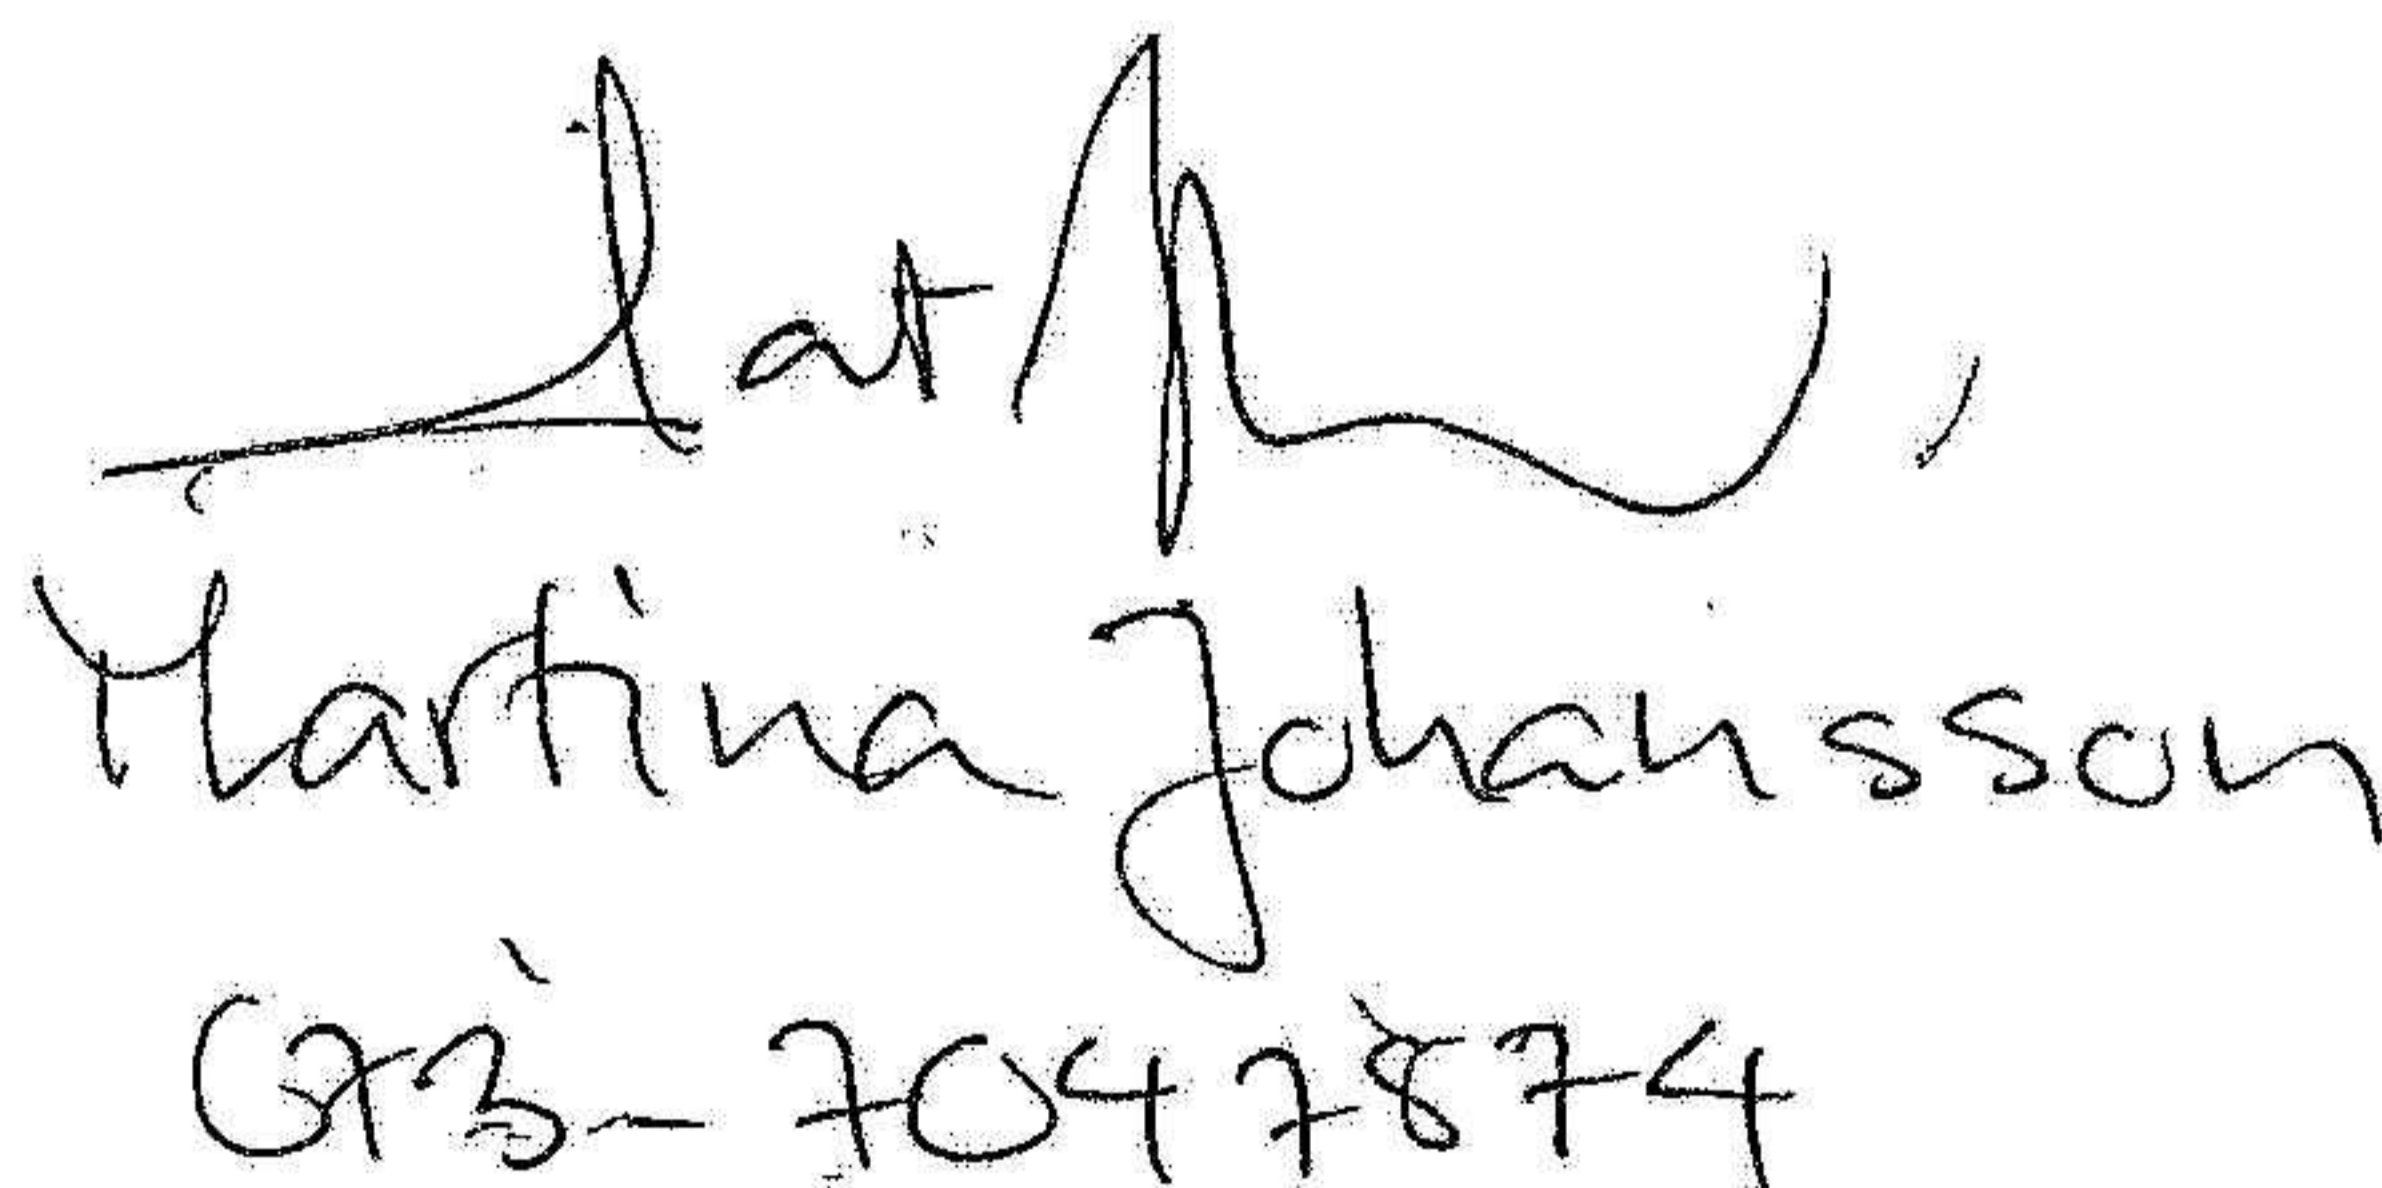 Martina Johansson
073-7047874